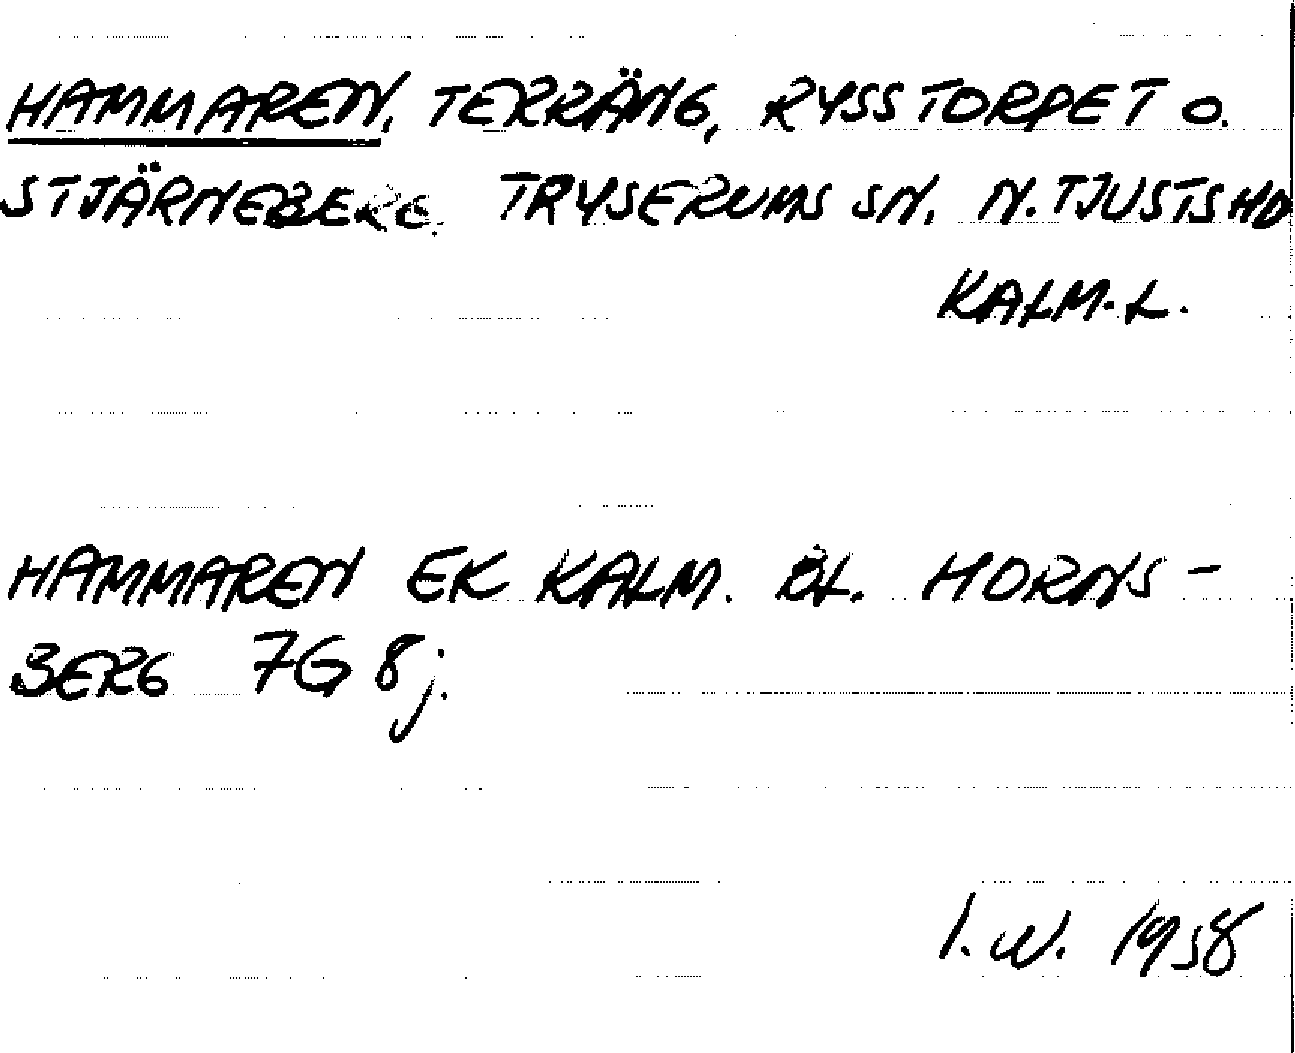 HAMMAREN, TERRÄNG, RYSSTORPET O.
STJÄRNEBERG. TRYSERUMS SN. N. TJUSTS HD
KALM. L.
HAMMAREN EK KALM. BL. HORNS-
BERG 7G 8j.
I. W. 1958